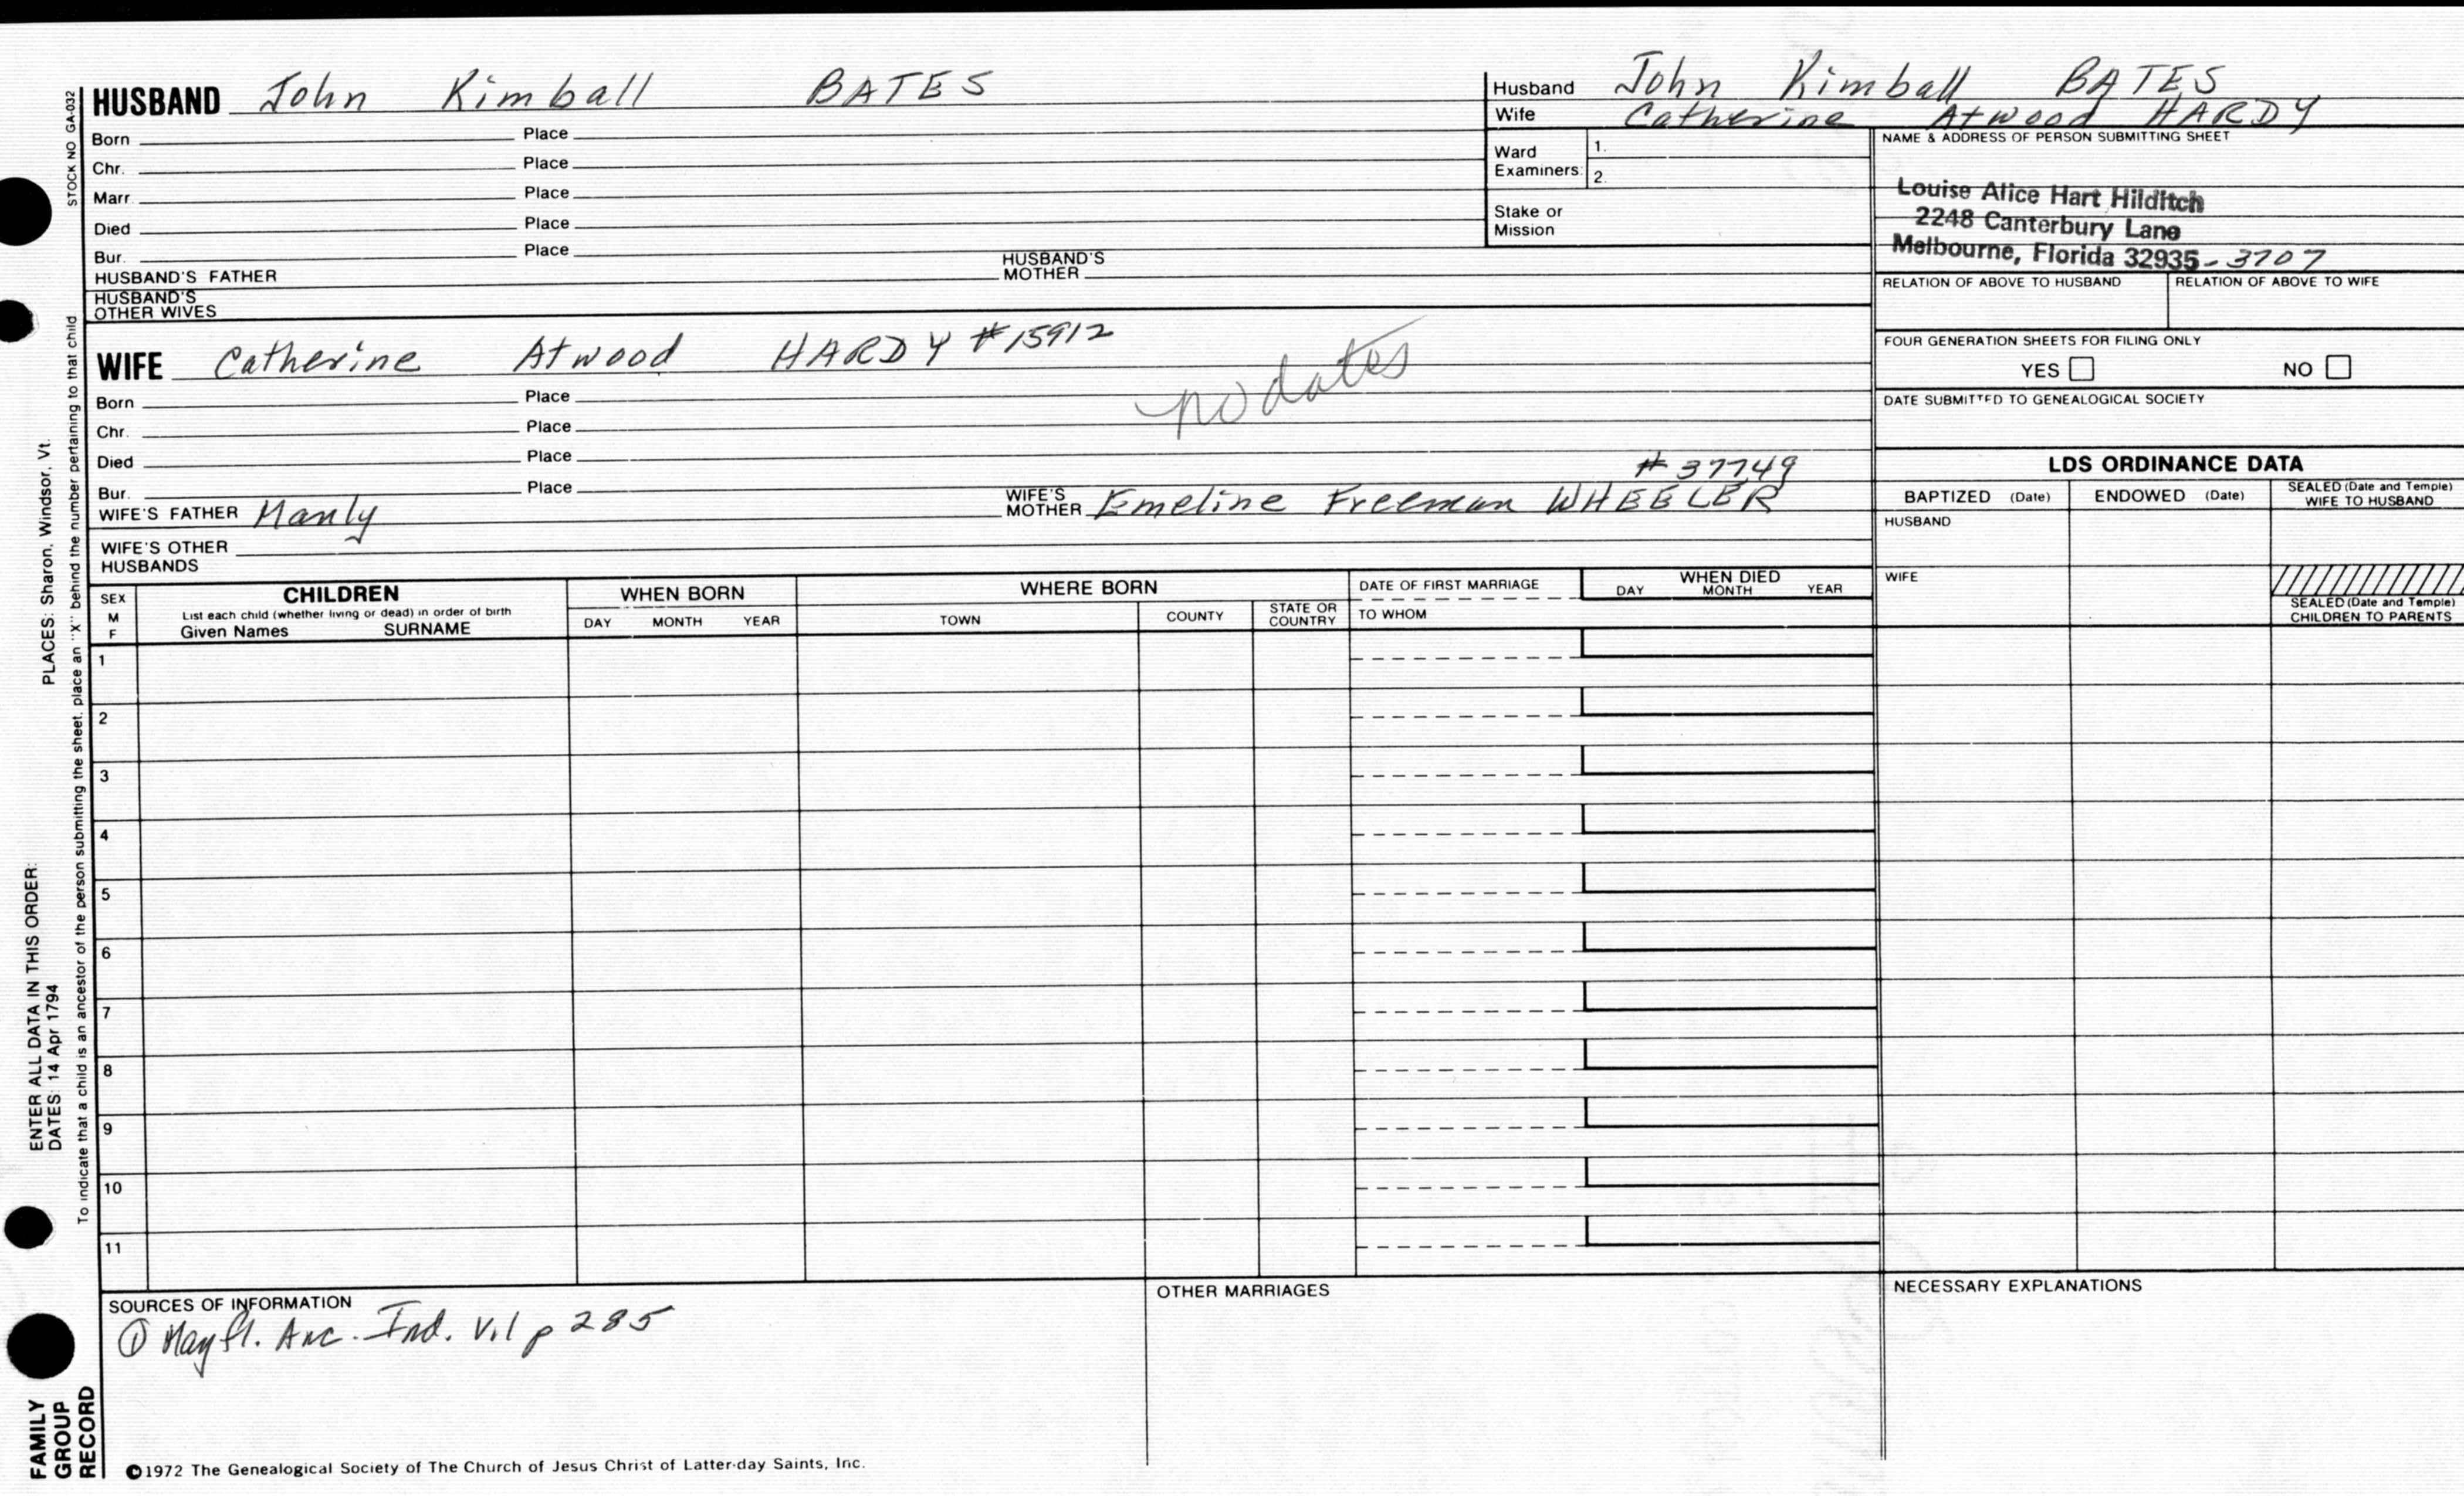 HUSBAND John Kimball BATES
Born Place
Chr. Place
Marr. Place
Died Place
Bur. Place
HUSBAND'S FATHER HUSBAND'S MOTHER
HUSBAND'S OTHER WIVES
Husband John Kimball BATES
Wife Catherine Atwood HARDY
Ward Examiners: 1.
2.
Stake or Mission
NAME & ADDRESS OF PERSON SUBMITTING SHEET
Louise Alice Hart Hilditch
2248 Canterbury Lane
Melbourne, Florida 32935-3707
RELATION OF ABOVE TO HUSBAND RELATION OF ABOVE TO WIFE
FOUR GENERATION SHEETS FOR FILING ONLY
YES NO
DATE SUBMITTED TO GENEALOGICAL SOCIETY
WIFE Catherine Atwood HARDY #15912
no dates
Born Place
Chr. Place
Died Place
Bur. Place
# 37749
WIFE'S FATHER Manly WIFE'S MOTHER Emeline Freeman WHEELER
WIFE'S OTHER HUSBANDS
LDS ORDINANCE DATA
BAPTIZED (Date) ENDOWED (Date) SEALED (Date and Temple) WIFE TO HUSBAND
HUSBAND
WIFE
SEALED (Date and Temple) CHILDREN TO PARENTS
SEX M F
CHILDREN
List each child (whether living or dead) in order of birth
Given Names SURNAME
WHEN BORN
DAY MONTH YEAR
WHERE BORN
TOWN COUNTY STATE OR COUNTRY
DATE OF FIRST MARRIAGE
TO WHOM
WHEN DIED
DAY MONTH YEAR
1
2
3
4
5
6
7
8
9
10
11
SOURCES OF INFORMATION
① Mayfl. Anc. Ind. V.1 p 285
OTHER MARRIAGES
NECESSARY EXPLANATIONS
©1972 The Genealogical Society of The Church of Jesus Christ of Latter-day Saints, Inc.
STOCK NO GA-032
To indicate that a child is an ancestor of the person submitting the sheet, place an "X" behind the number pertaining to that child
PLACES: Sharon, Windsor, Vt.
ENTER ALL DATA IN THIS ORDER:
DATES: 14 Apr 1794
FAMILY
GROUP
RECORD